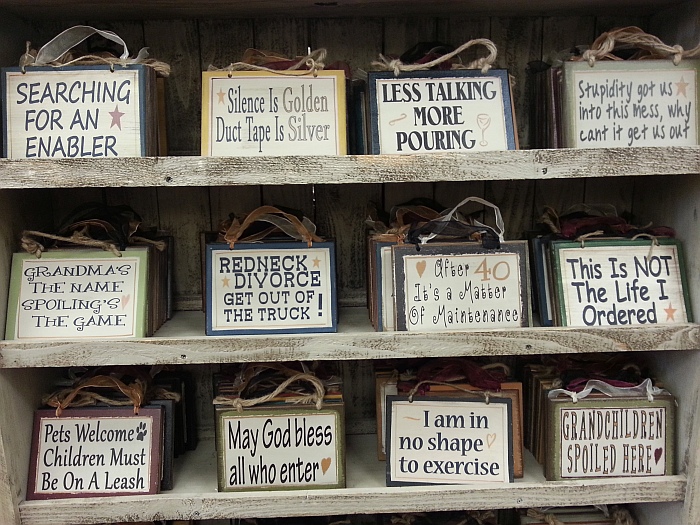 SEARCHING
FOR AN
ENABLER
Silence Is Golden
Duct Tape Is Silver
LESS TALKING
MORE
POURING
Stupidity got us
into this mess, why
cant it get us out
GRANDMA'S
THE NAME
SPOILING'S
THE GAME
REDNECK
DIVORCE
GET OUT OF
THE TRUCK!
After 40
It's a Matter
Of Maintenance
This Is NOT
The Life I
Ordered
Pets Welcome
Children Must
Be On A Leash
May God bless
all who enter
I am in
no shape
to exercise
GRANDCHILDREN
SPOILED HERE